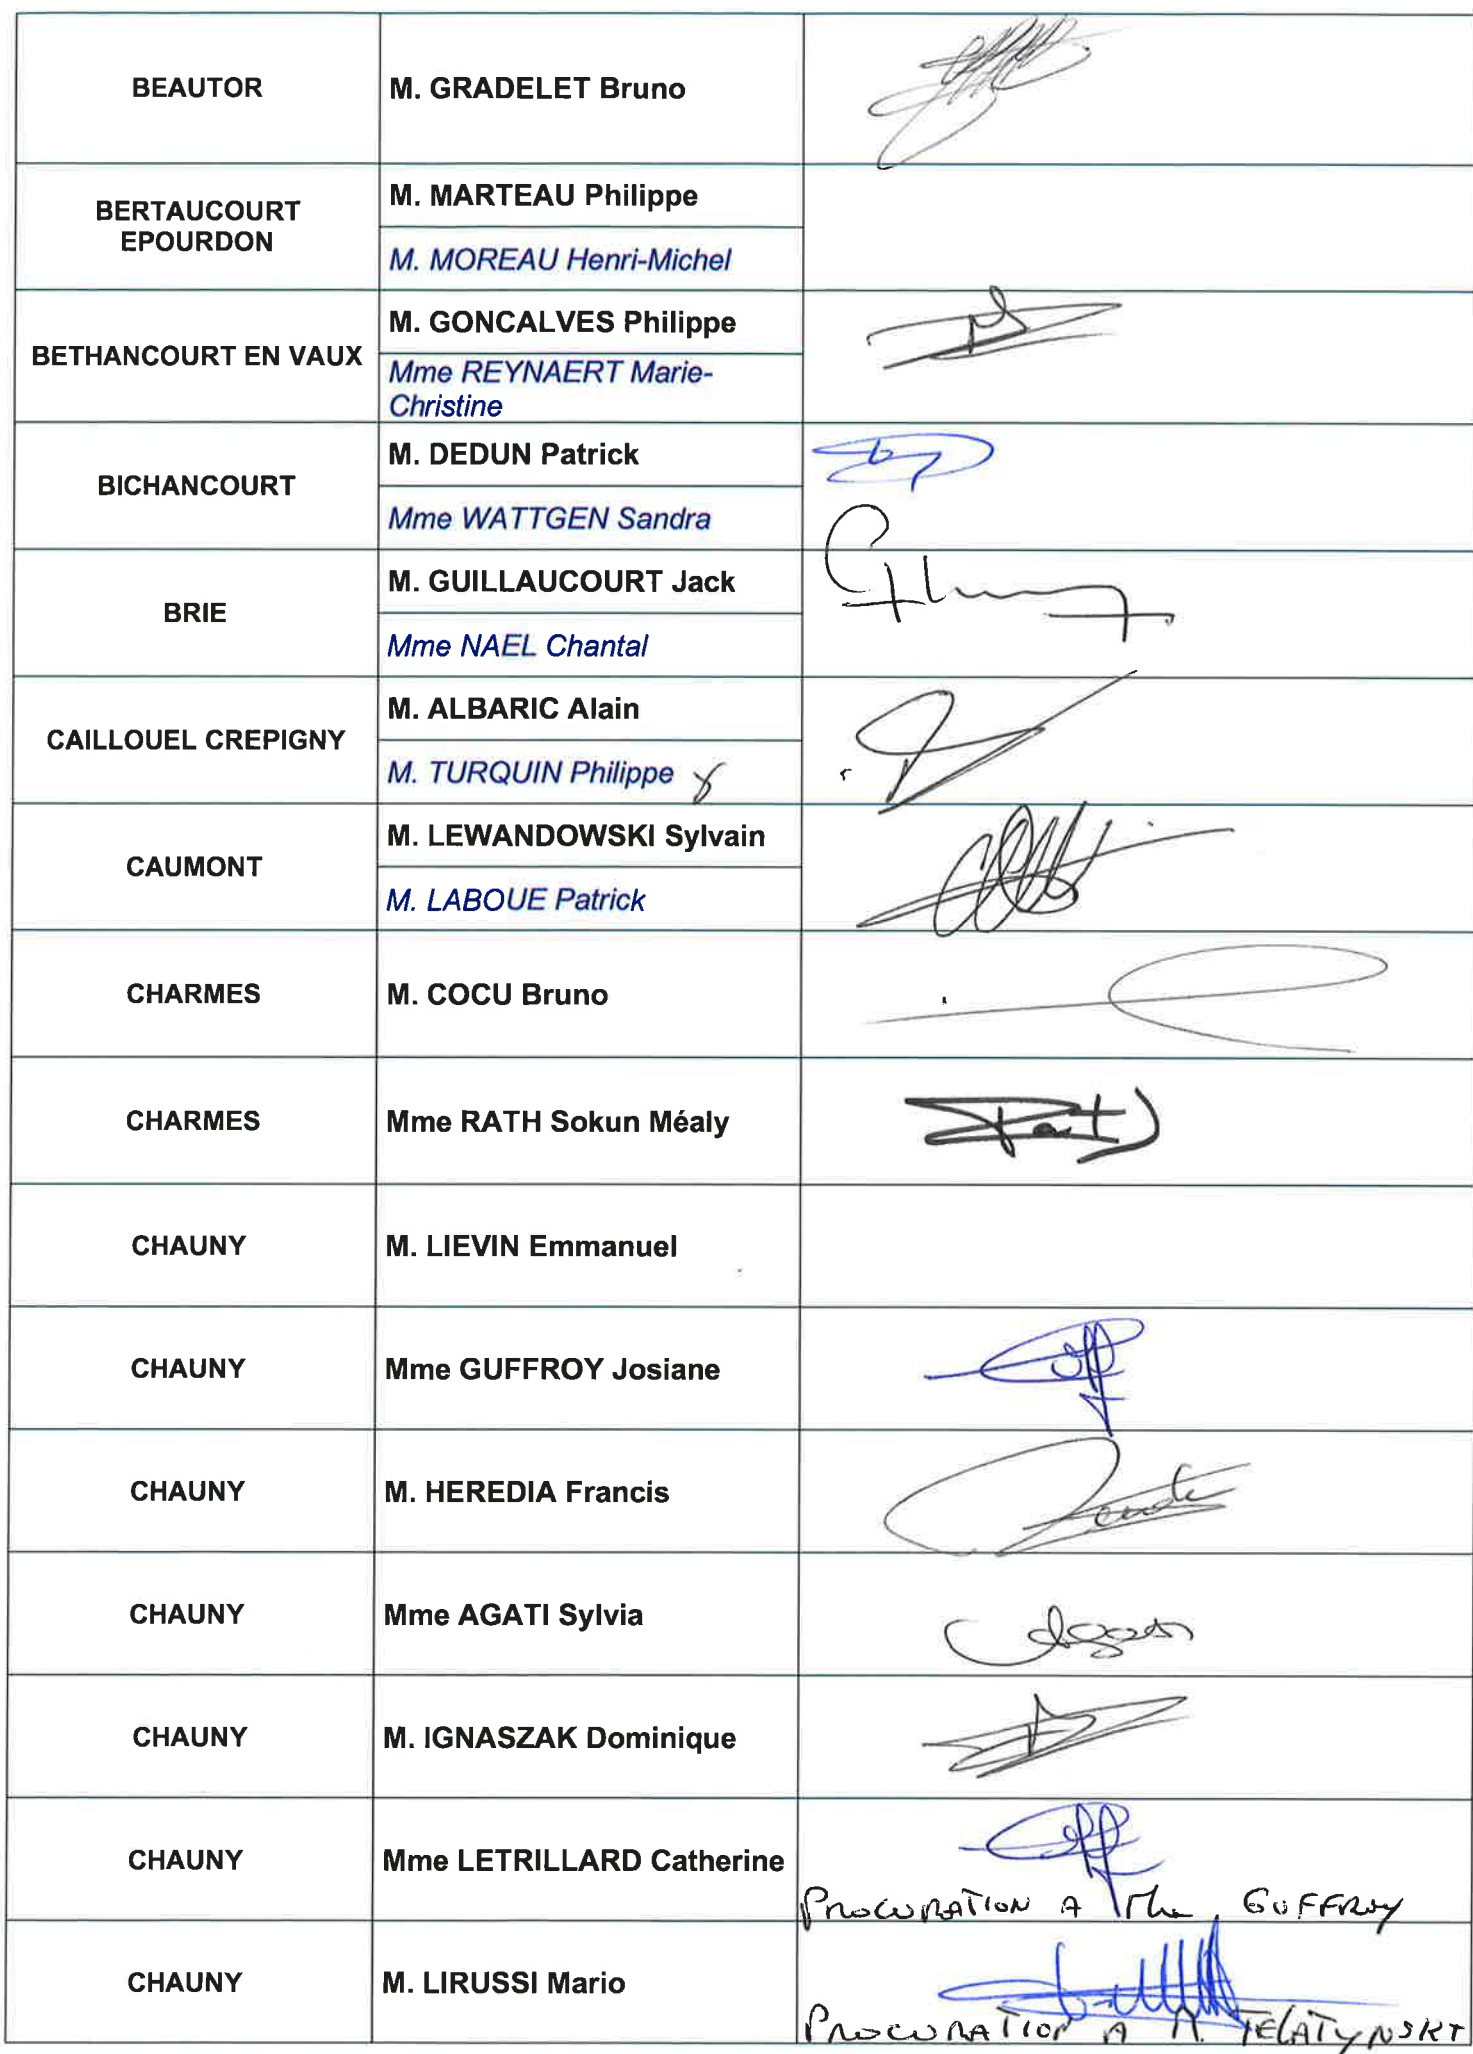 BEAUTOR
M. GRADELET Bruno
BERTAUCOURT
EPOURDON
M. MARTEAU Philippe
M. MOREAU Henri-Michel
BETHANCOURT EN VAUX
M. GONCALVES Philippe
Mme REYNAERT Marie-
Christine
BICHANCOURT
M. DEDUN Patrick
Mme WATTGEN Sandra
BRIE
M. GUILLAUCOURT Jack
Mme NAEL Chantal
CAILLOUEL CREPIGNY
M. ALBARIC Alain
M. TURQUIN Philippe
CAUMONT
M. LEWANDOWSKI Sylvain
M. LABOUE Patrick
CHARMES
M. COCU Bruno
CHARMES
Mme RATH Sokun Méaly
CHAUNY
M. LIEVIN Emmanuel
CHAUNY
Mme GUFFROY Josiane
CHAUNY
M. HEREDIA Francis
CHAUNY
Mme AGATI Sylvia
CHAUNY
M. IGNASZAK Dominique
CHAUNY
Mme LETRILLARD Catherine
PROCURATION A Mme GUFFROY
CHAUNY
M. LIRUSSI Mario
PROCURATION A M. TELATYNSKI